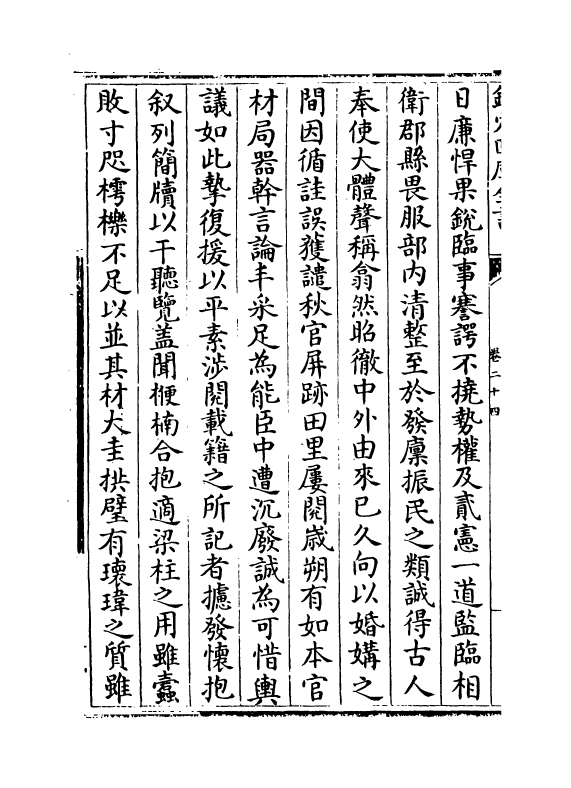 日廉悍果銳臨事謇諤不撓勢權及貳憲一道監臨相
衛郡縣畏服部内清整至於發廩振民之類誠得古人
奉使大體聲稱翕然昭徹中外由來已久向以婚媾之
間因循詿誤獲譴秋官屏跡田里屢閱歳朔有如本官
材局器幹言論丰采足為能臣中遭沉廢誠為可惜輿
議如此摯復援以平素涉閱載籍之所記者攄發懷抱
叙列簡牘以干聽覽盖聞楩楠合抱適梁柱之用雖蠧
敗寸咫樗櫟不足以並其材大圭拱璧有瓌瑋之質雖
卷二十四